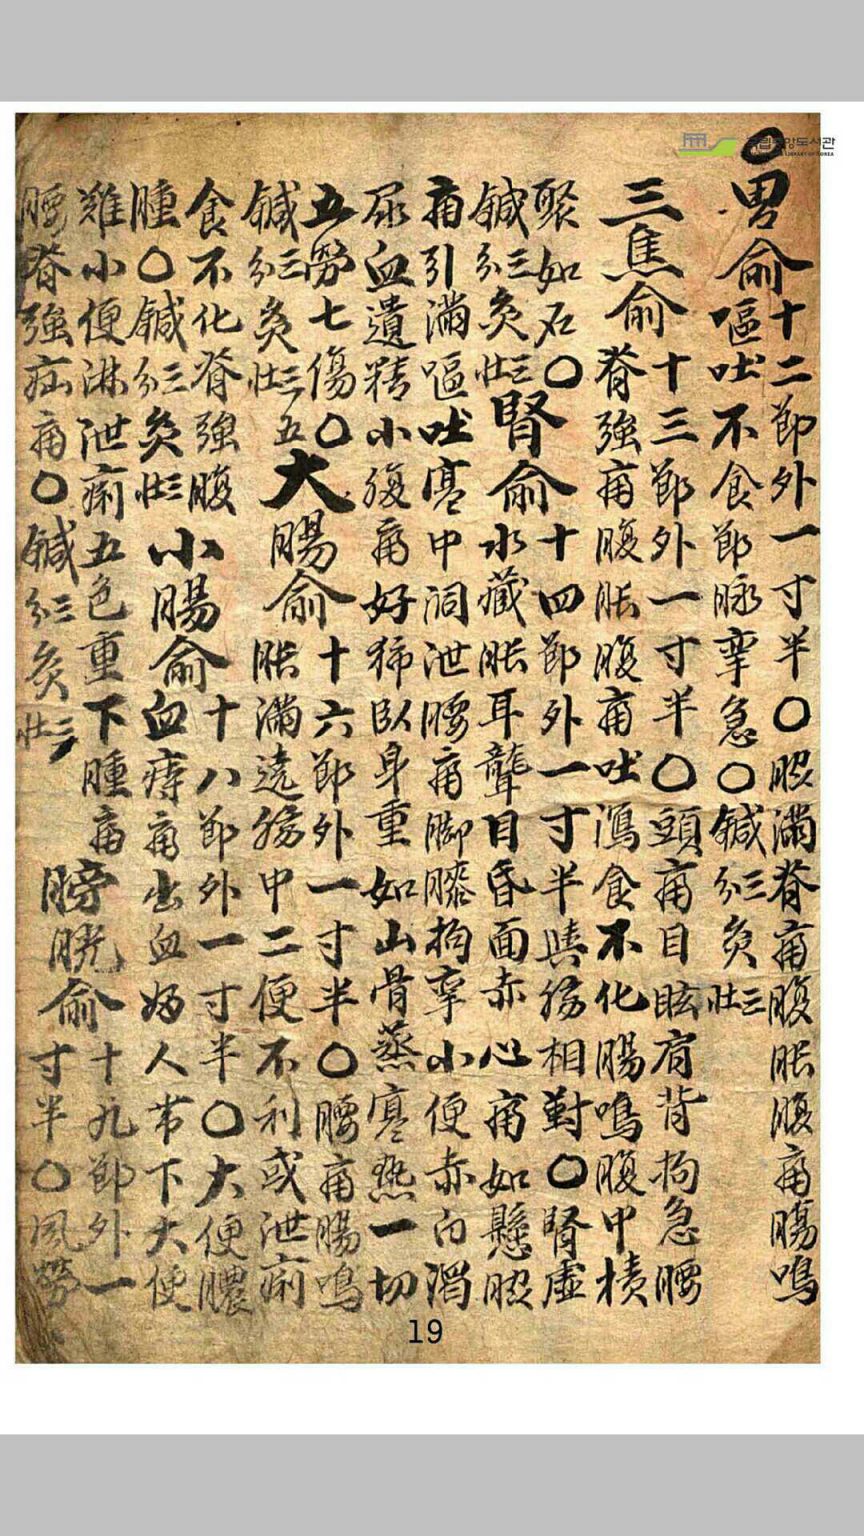 국립중앙도서관
NATIONAL LIBRARY OF KOREA
〇胃俞
十二節外一寸半〇脹滿脊痛腹脹腹痛腸鳴
嘔吐不食節脉挛急〇鍼三分灸三壯
三焦俞
十三節外一寸半〇頭痛目眩肩背拘急腰
脊強痛腹脹腹痛吐瀉食不化腸鳴腹中積
聚如石〇
鍼三分灸三壯
腎俞
十四節外一寸半與臍相對〇腎虛
水藏脹耳聾目昏面赤心痛如懸脹
痛引滿嘔吐寒中洞泄腰痛脚膝拘挛小便赤白濁
尿血遺精小腹痛好獨臥身重如山骨蒸寒热一切
五勞七傷〇
鍼三分灸三壯五
大腸俞
十六節外一寸半〇腰痛腸鳴
脹滿遶臍中二便不利或泄痢
食不化脊強腹
腫〇鍼三分灸三壯
小腸俞
十八節外一寸半〇大便膿
血痔痛出血婦人帯下大便
難小便淋泄痢五色重下腫痛
腰脊強疝痛〇鍼三分灸三壯
膀胱俞
十九節外一
寸半〇風勞
19